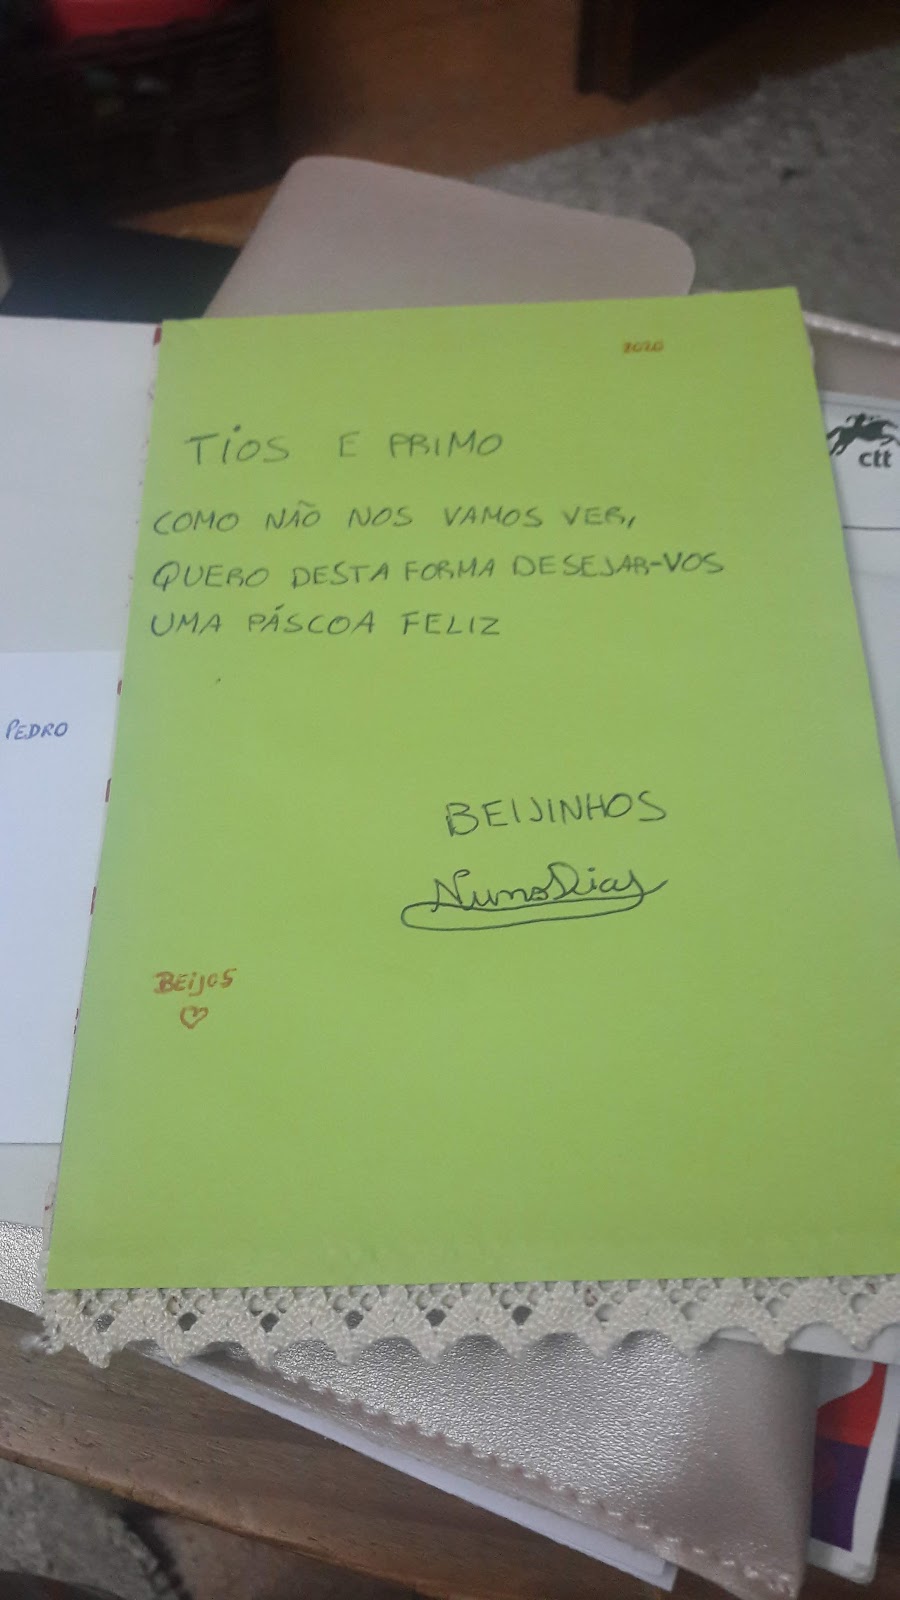 2020
TIOS E PRIMO
COMO NÃO NOS VAMOS VER,
QUERO DESTA FORMA DESEJAR-VOS
UMA PÁSCOA FELIZ
BEIJINHOS
Nuno Dias
BEIJOS
PEDRO
ctt